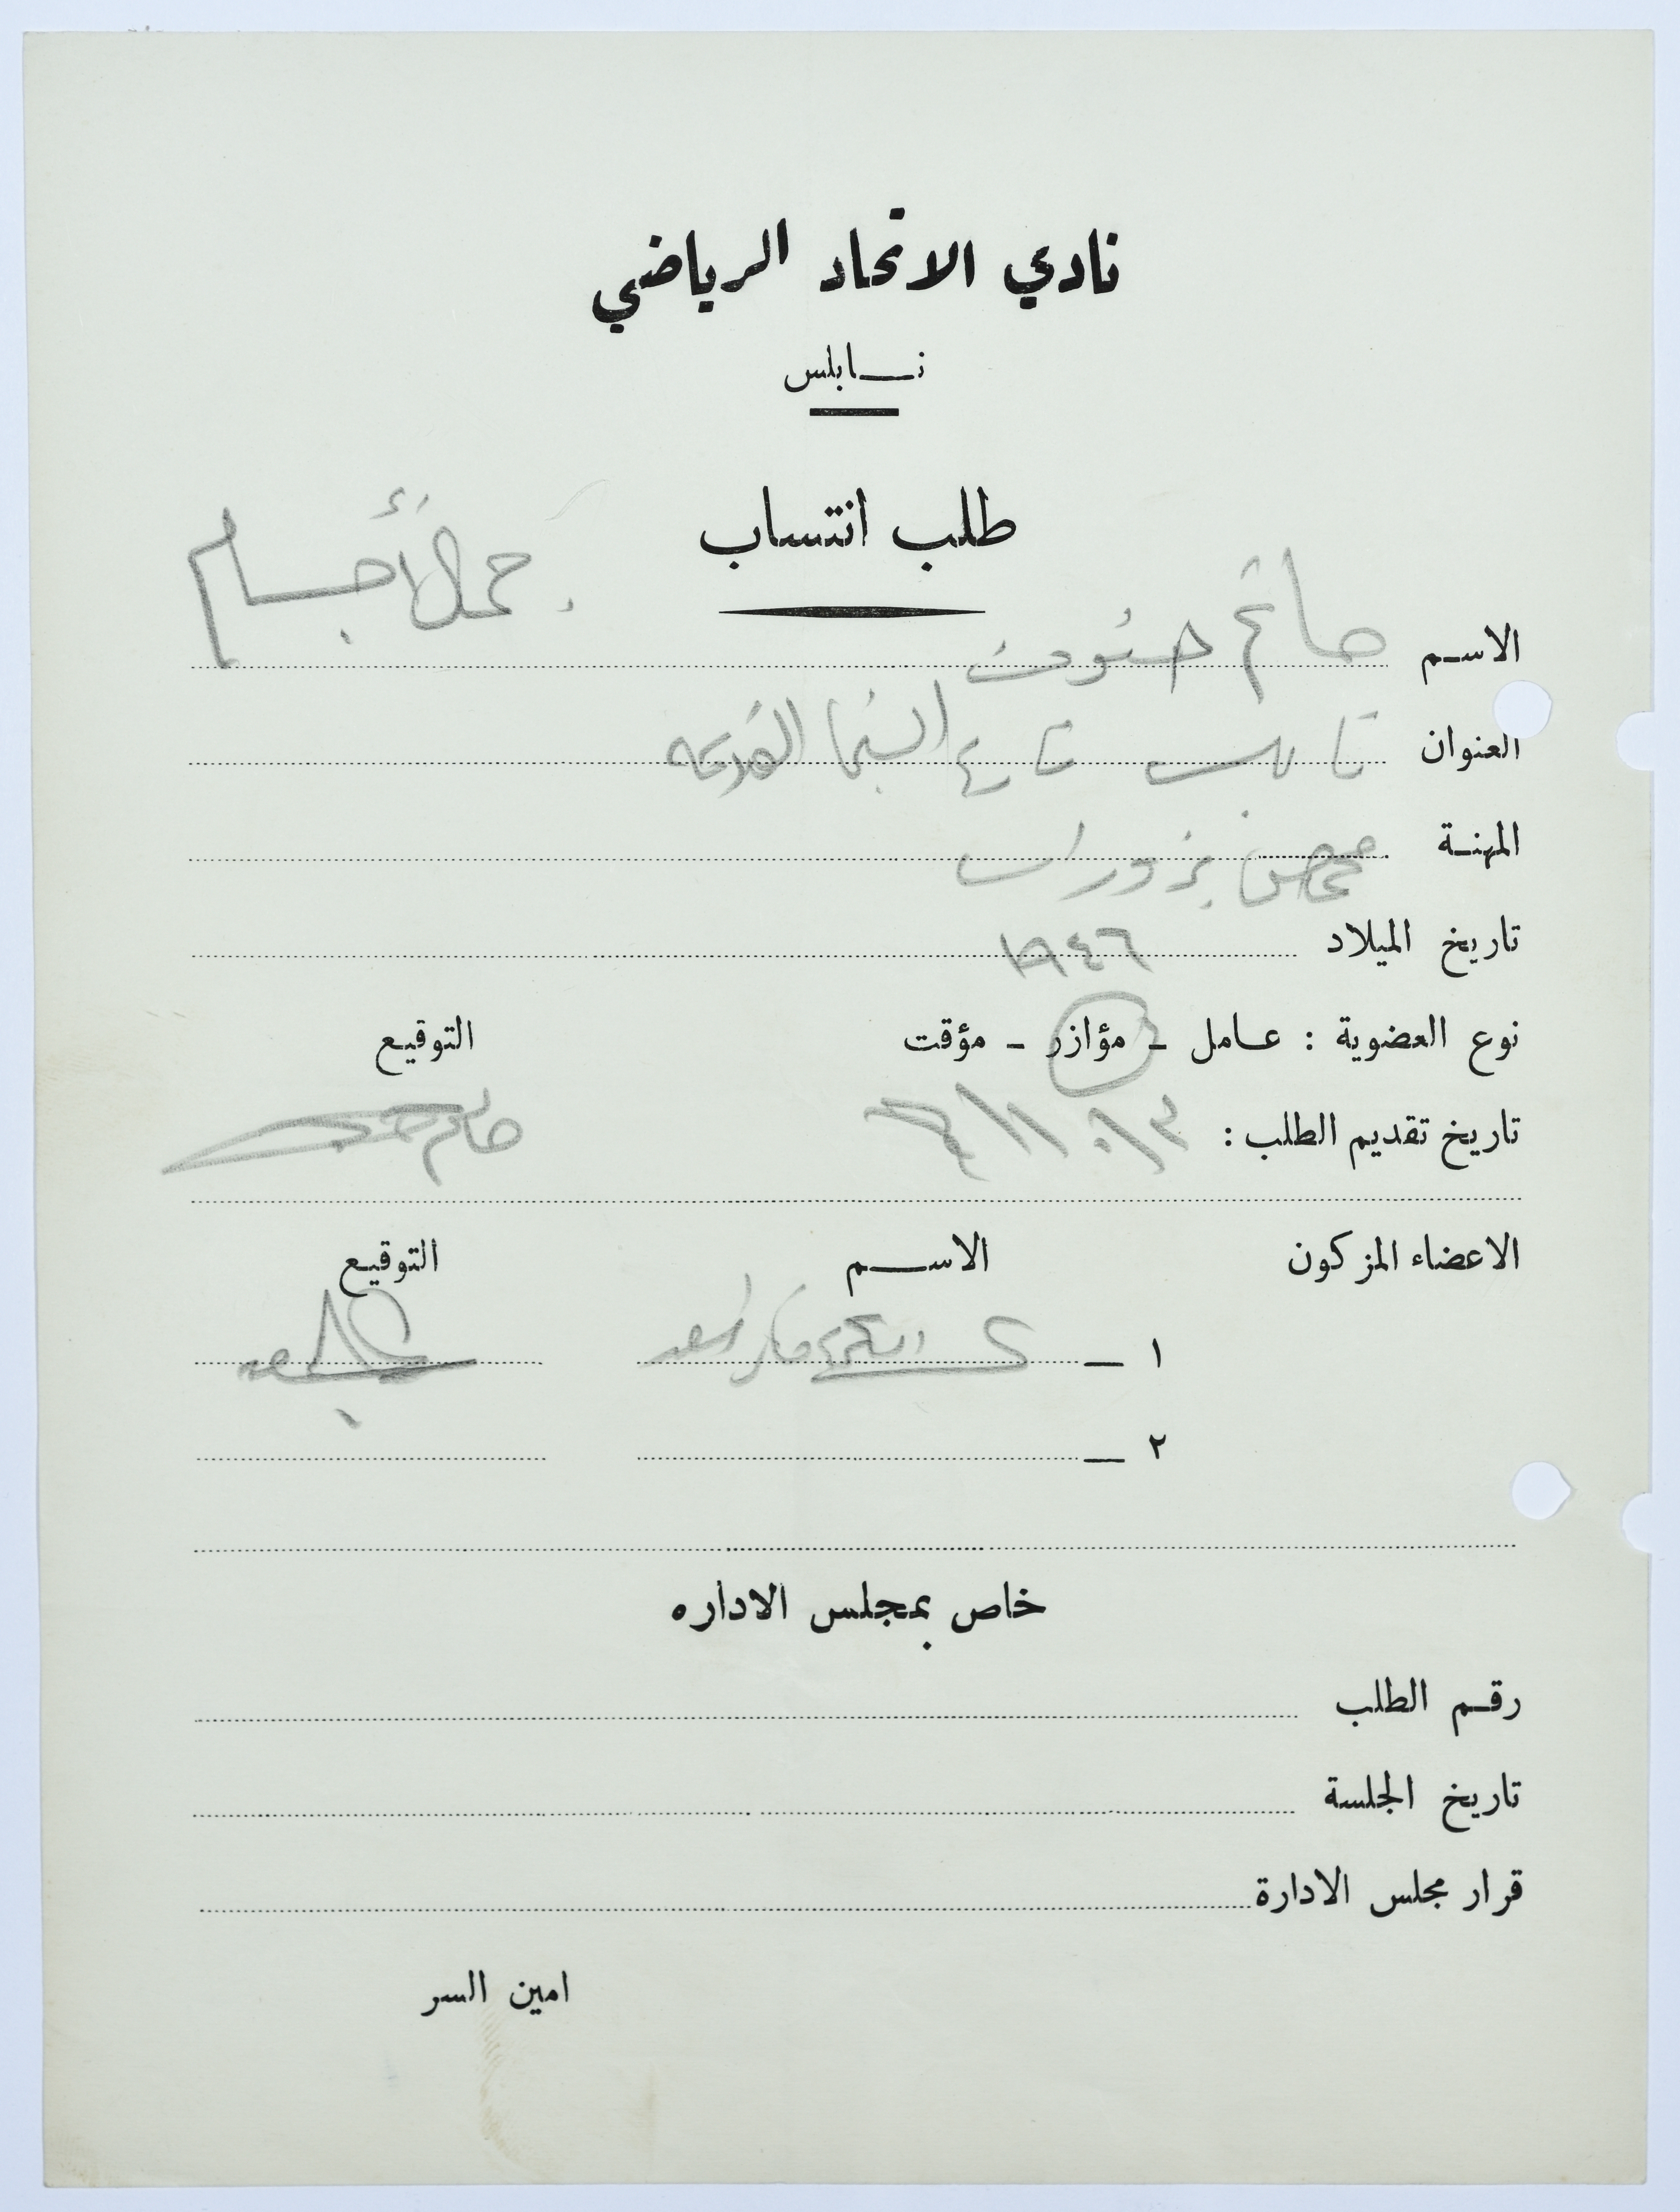 نادي الاتحاد الرياضي
نابلس
طلب انتساب
جمال أجسام
الاسم حاتم
العنوان نابلس شارع السينما القديمة
المهنة محمص بزورات
تاريخ الميلاد ١٩٤٦
نوع العضوية : عامل - مؤازر - مؤقت التوقيع
تاريخ تقديم الطلب :
الاعضاء المزكون الاسم التوقيع
١ —
٢ —
خاص بمجلس الاداره
رقم الطلب
تاريخ الجلسة
قرار مجلس الادارة
امين السر